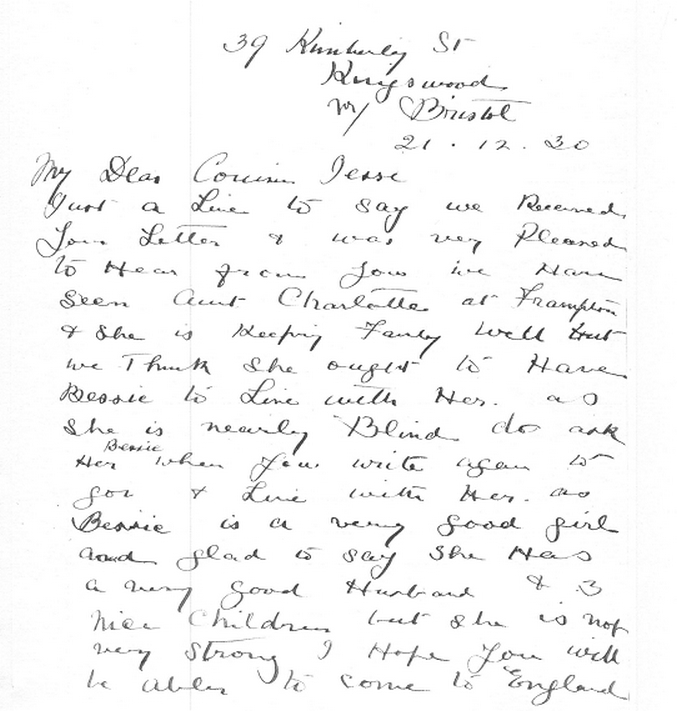 39 Kimberley St
Kingswood
nr Bristol
21.12.30
My Dear Cousin Jesse
Just a Line to say we Received
Your Letter & was very Pleased
to Hear from You we Have
seen Aunt Charlotte at Frampton
& she is Keeping Fairly well but
we Think she ought to Have
Bessie to Live with Her. as
she is nearly Blind do ask
Bessie
Her when You write again to
go & Live with Her. as
Bessie is a very good girl
and glad to say she Has
a very good Husband & 3
nice Children but she is not
very strong I Hope You will
be able to come to England